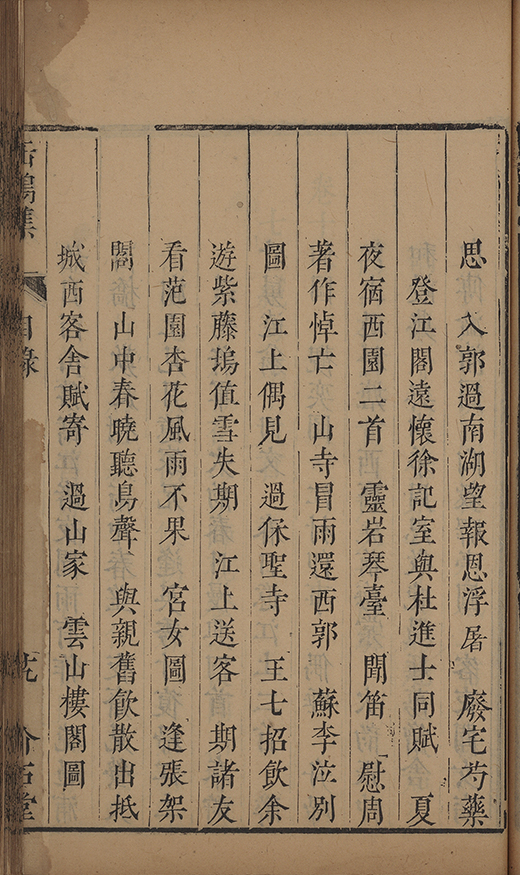 思　入郭過南湖望報恩浮屠　廢宅芍藥
登江閣遠懷徐記室與杜進士同賦　夏
夜宿西園二首　靈岩琴臺　聞笛　慰周
著作悼亡　山寺冒雨還西郭　蘇李泣別
圖　江上偶見　過保聖寺　王七招飲余
遊紫藤塢值雪失期　江上送客　期諸友
看范園杏花風雨不果　宮女圖　逢張架
閣　山中春曉聽鳥聲　與親舊飲散出抵
城西客舍賦寄　過山家　雲山樓閣圖
鳴集　目錄